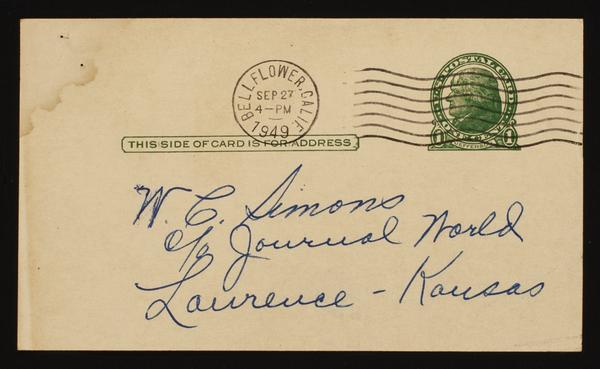 BELLFLOWER, CALIF.
SEP 27
4-PM
1949
THIS SIDE OF CARD IS FOR ADDRESS
W. C. Simons
c/o Journal World
Lawrence - Kansas